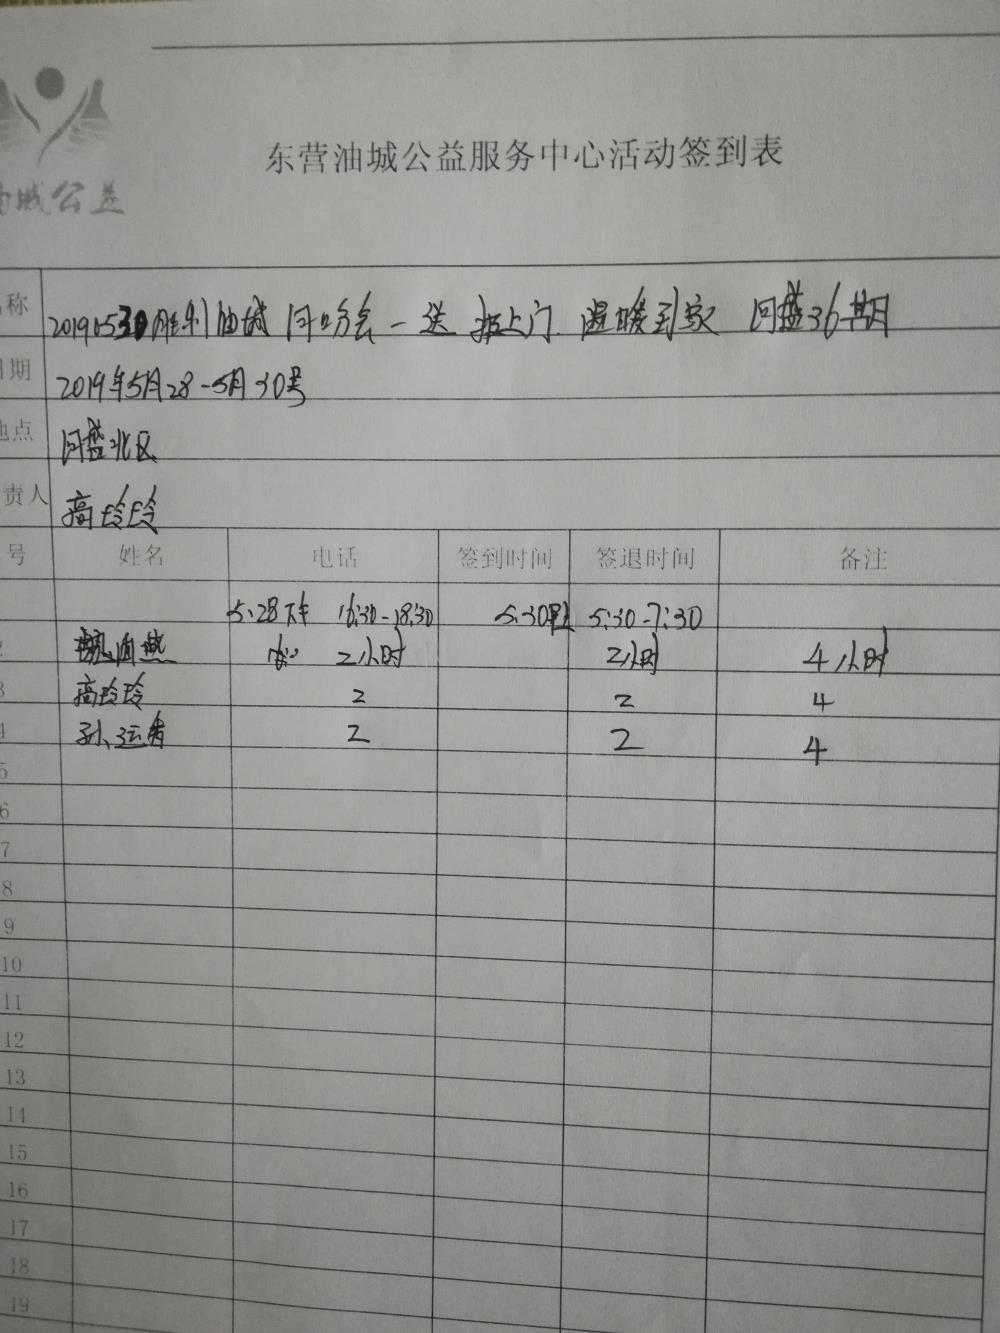 东营油城公益服务中心活动签到表
城公益
称 20190530胜利油城河口分会-送报上门 温暖到家 同盛36期
期 2019年5月28-5月30号
地点 同盛北区
责人 高玲玲
号 姓名 电话 签到时间 签退时间 备注
5.28下午 16:30-18:30 5.30早上 5:30-7:30
2 燕 2小时 2小时 4小时
3 高玲玲 2 2 4
4 孙运 2 2 4
5
6
7
8
9
10
11
12
13
14
15
16
17
18
19